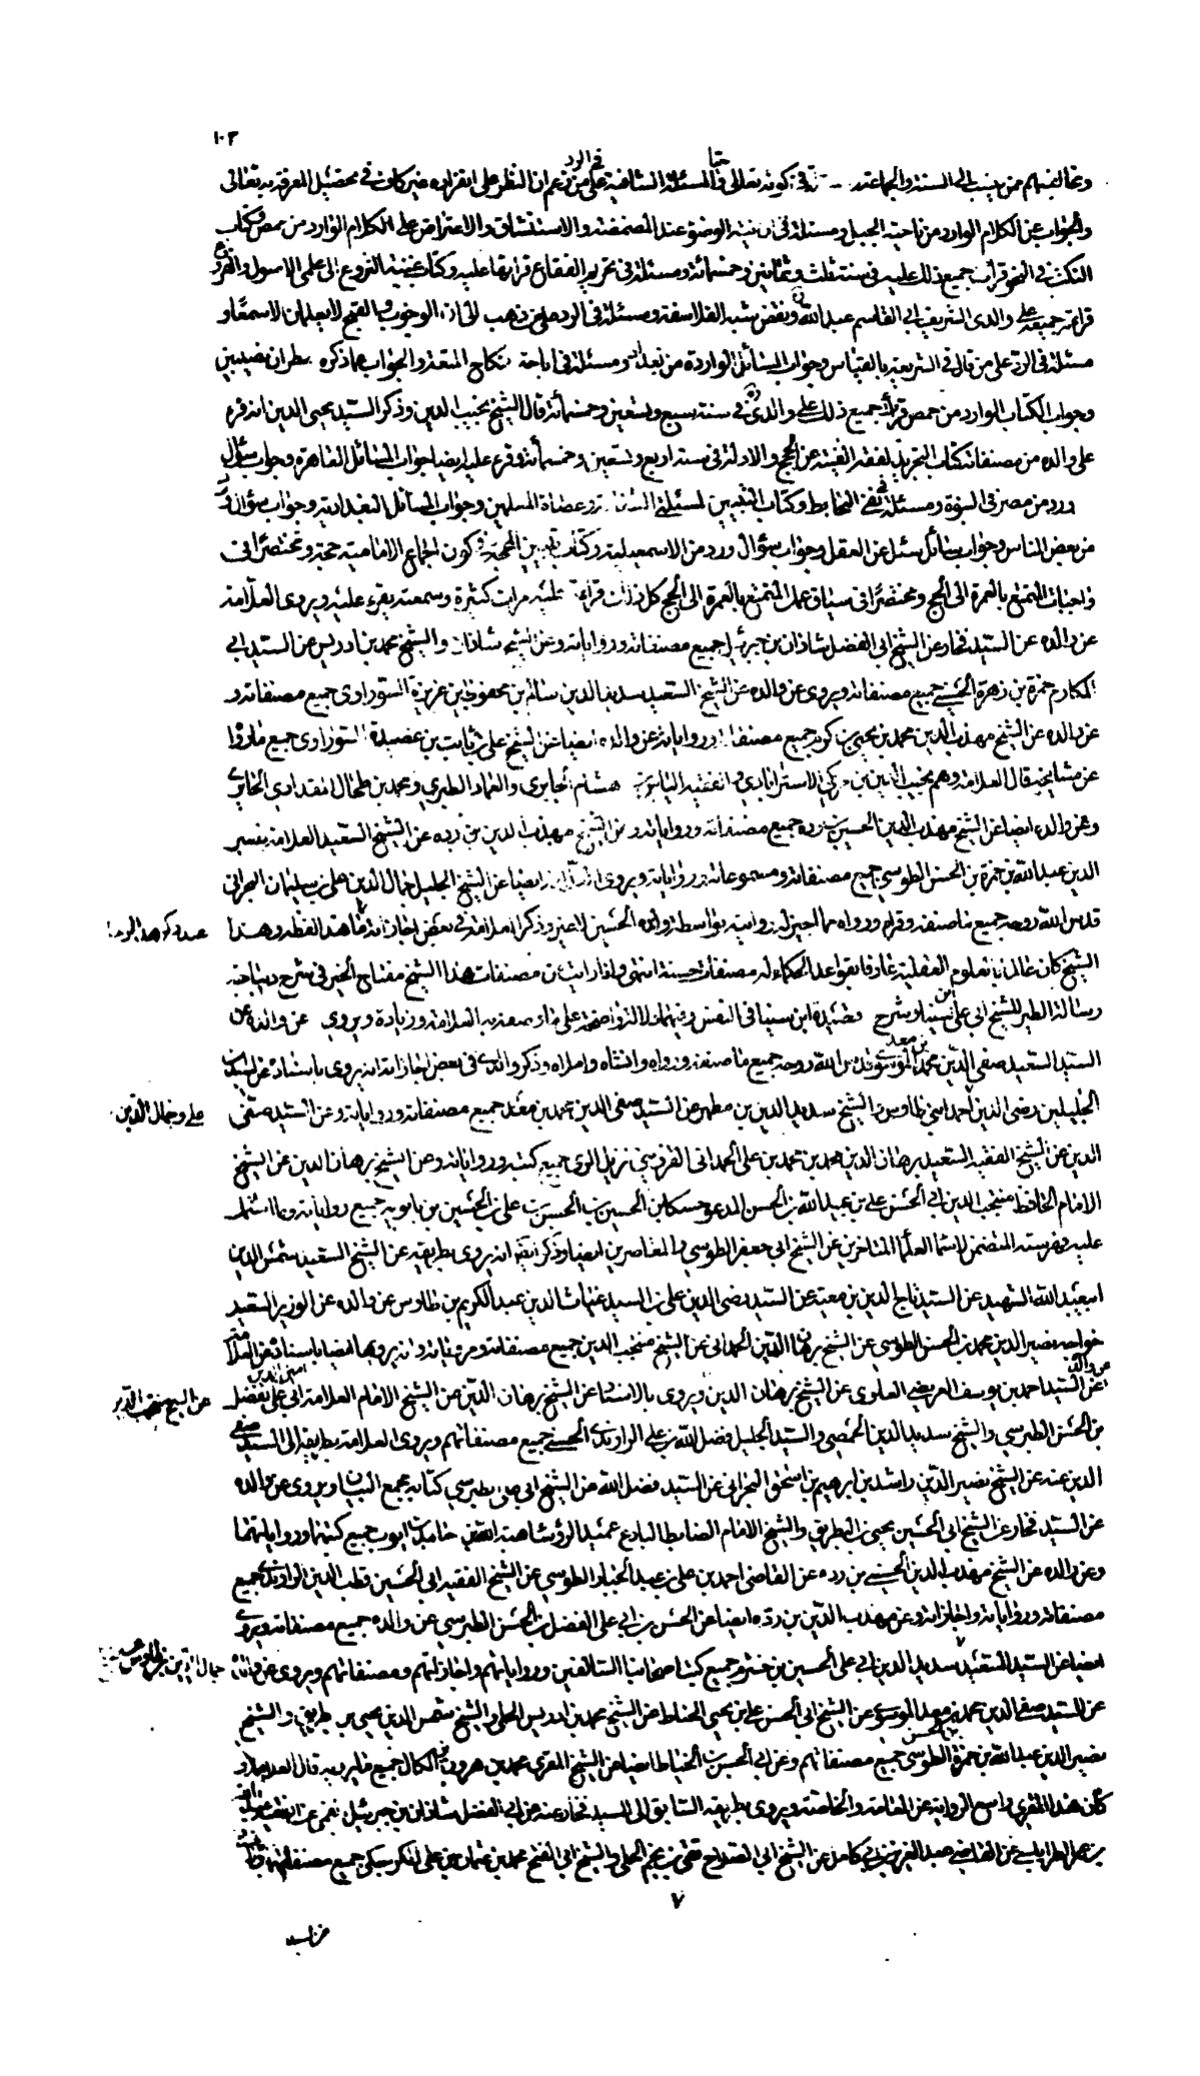 ١٠٣
من ينسب الى السنة والجماعة في كونه تعالى حيا والمسئلة الشافية في الرد على من زعم ان النظر على انفراده غير كاف في تحصيل المعرفة به تعالى
والجواب عن الكلام الوارد من ناحية الجبل ومسئلة في نية الوضوء عند المضمضة والاستنشاق والاعتراض على الكلام الوارد من حمص وكتاب
النكت في النحو قرأت جميع ذلك عليه في سنة ثلث وثمانين وخمسمائة ومسئلة في تحريم الفقاع قرأتها عليه وكتاب غنية النزوع الى علمي الاصول والفروع
قرأ جميعه على والدى الشريف ابي القاسم عبد الله ونقض شبه الفلاسفة ومسئلة في الرد على من ذهب الى ان الوجوب والقبح لا يعلمان الا سمعا و
مسئلة في الرد على من قال في الشريعة بالقياس وجواب المسائل الواردة من بغداد ومسئلة في اباحة نكاح المتعة والجواب عما ذكره مطران نصيبين
وجواب الكتاب الوارد من حمص قرأ جميع ذلك على والدى في سنة سبع وتسعين وخمسمائة قال الشيخ نجيب الدين وذكر السيد محيى الدين انه قرء
على والده من مصنفاته كتاب التجريد لفقه الغنية عن الحجج والادلة في سنة اربع وتسعين وخمسمائة وقرء عليه ايضا جواب المسائل القاهرة وجواب سؤال
ورد من مصر في النبوة ومسئلة في نفي التخابط وكتاب التبيين لمسئلتي الشفاعة وعصاة المسلمين وجواب المسائل البغدادية وجواب سؤال ورد
من بعض الناس وجواب سائل سئل عن العقل وجواب سؤال ورد من الاسمعيلية وكتاب تبيين المحجة في كون اجماع الامامية حجة ومختصرا في
واجبات التمتع بالعمرة الى الحج ومختصرا في سياق عمل المتمتع بالعمرة الى الحج كل ذلك قراءة عليه مرات كثيرة وسمعته يقرء عليه ويروى العلامة
عن والده عن السيد فخار عن الشيخ ابي الفضل شاذان بن جبرئيل جميع مصنفاته ورواياته وعن الشيخ شاذان والشيخ محمد بن ادريس عن السيد ابي
المكارم حمزة بن زهرة الحسيني جميع مصنفاته ويروى عن والده عن الشيخ السعيد سديد الدين سالم بن محفوظ بن عزيزة السوراوى جميع مصنفاته و
عن والده عن الشيخ مهذب الدين محمد بن يحيى بن كرم جميع مصنفاته ورواياته وعن والده ايضا عن الشيخ على بن ثابت بن عصيدة السوراوى جميع ما رواه
عن مشايخه قال العلامة وهم نجيب الدين بن مكي الاسترابادي والفقيه الياس بن هشام الحايرى والعماد الطبري ومحمد بن طحال المقدادى الحايرى
وعن والده ايضا عن الشيخ مهذب الدين الحسين بن رده جميع مصنفاته ورواياته وعن الشيخ مهذب الدين بن رده عن الشيخ السعيد العلامة نصير
الدين عبد الله بن حمزة بن الحسن الطوسي جميع مصنفاته ومسموعاته ورواياته ويروى ايضا عن الشيخ الجليل جمال الدين على بن سليمان البحراني
قدس الله روحه جميع ما صنفه وقرأه ورواه مما اجيز له روايته بواسطة ولده الحسين لا غير وذكر العلامة في بعض اجازاته ما هذا لفظه وهذا
الشيخ كان عالما بالعلوم العقلية عارفا بقواعد الحكماء له مصنفات حسنة انتهى وانا رايت من مصنفات هذا الشيخ مفتاح الخير في شرح ديباجة
رسالة الطير للشيخ ابى على بن سينا وشرح قصيدة ابن سينا في النفس وفيهما دلالة واضحة على ما وصفه به العلامة وزيادة ويروى عن والده عن
السيد السعيد صفي الدين محمد بن معد الموسوى قدس الله روحه جميع ما صنفه ورواه وانشاه واملاه وذكر والدى في بعض اجازاته انه يروى باسناده عن السيدين
الجليلين رضى الدين على وجمال الدين احمد ابني طاوس والشيخ سديد الدين بن مطهر عن السيد صفى الدين محمد بن معد جميع مصنفاته ورواياته وعن السيد صفى
الدين عن الشيخ الفقيه السعيد برهان الدين محمد بن محمد بن على الحمدانى القزويني نزيل الرى جميع كتبه ورواياته وعن الشيخ برهان الدين عن الشيخ
الامام الحافظ منتجب الدين ابي الحسن على بن عبيد الله بن الحسن المدعو حسكا بن الحسين بن الحسن بن على بن الحسين بن بابويه جميع رواياته وما اشتمل
عليه فهرسته المتضمن لاسماء العلماء المتاخرين عن الشيخ ابى جعفر الطوسي والمعاصرين ايضا وذكر انه يروى بطريقه عن الشيخ السعيد شمس الدين
ابي عبد الله الشهيد عن السيد تاج الدين بن معية عن السيد رضى الدين على بن السيد غياث الدين عبد الكريم بن طاوس عن والده عن الوزير السعيد
خواجه نصير الدين محمد بن الحسن الطوسي عن الشيخ برهان الدين الحمدانى عن الشيخ منتجب الدين جميع مصنفاته ومروياته وانه يرويها ايضا باسناده عن العلامة
عن والده عن السيد احمد بن يوسف العريضي العلوى عن الشيخ برهان الدين ويروى بالاسناد عن الشيخ برهان الدين عن الشيخ الامام العلامة امين الدين ابي على الفضل
عن الشيخ منتجب الدين
بن الحسن الطبرسي والشيخ سديد الدين الحمصي والسيد الجليل فضل الله بن على الراوندى الحسني جميع مصنفاتهم ويروى العلامة بطريقه الى السيد صفي
الدين عنه عن الشيخ نصير الدين راشد بن ابرهيم بن اسحق البحرانى عن السيد فضل الله عن الشيخ ابى على الطبرسي كتابه مجمع البيان ويروى عن والده
عن السيد فخار عن الشيخ ابى الحسين يحيى بن البطريق والشيخ الامام الضابط البارع عميد الرؤساء هبة الله بن حامد بن ايوب جميع كتبهما ورواياتهما
وعن والده عن الشيخ مهذب الدين الحسين بن رده عن القاضى احمد بن على بن عبد الجبار الطوسي عن الشيخ الفقيه ابى الحسين قطب الدين الراوندى جميع
مصنفاته ورواياته واجازاته وعن مهذب الدين بن رده ايضا عن الحسن بن ابى على الفضل بن الحسن الطبرسي عن والده جميع مصنفاته ويروى
ايضا عن السيد السعيد جمال الدين بن طاوس عن سديد الدين ابي على الحسين بن خشرم جميع كتب اصحابنا السالفين ورواياتهم واجازاتهم ومصنفاتهم ويروى عن والده
عن السيد صفي الدين محمد بن معد الموسوى عن الشيخ ابى الحسن على بن يحيى الخياط عن الشيخ محمد بن ادريس الحلى والشيخ شمس الدين يحيى بن بطريق والشيخ
نصير الدين عبد الله بن حمزة بن الحسن الطوسي جميع مصنفاتهم وعن ابي الحسن بن الخياط ايضا عن الشيخ المقرى محمد بن هرون بن الكال جميع ما يرويه قال العلامة و
كان هذا المقرى واسع الرواية عن العامة والخاصة ويروى بطريقه السابق الى السيد فخار عنه عن ابي الفضل شاذان بن جبرئيل القمى عن الفقيه عبد الله
بن عمر الطرابلسي عن القاضي عبد العزيز بن ابي كامل عن الشيخ ابي الصلاح تقى بن نجم الحلبى والشيخ ابى الفتح محمد بن عثمان بن على الكراجكى جميع مصنفاتهما
٧